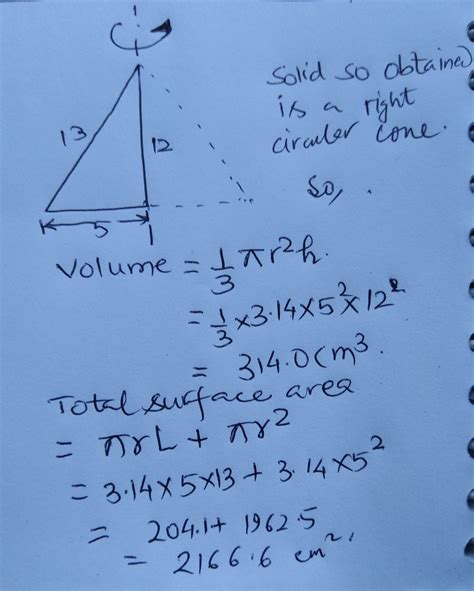 Solid so obtained
is a right
circular cone.
So,
13
12
5
Volume = 1/3 πr²h.
= 1/3 × 3.14 × 5² × 12²
= 314.0 cm³.
Total surface area
= πrL + πr²
= 3.14 × 5 × 13 + 3.14 × 5²
= 204.1 + 1962.5
= 2166.6 cm².